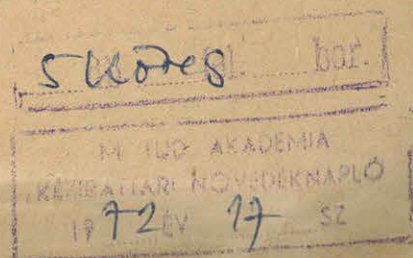 5 Kodes bor.
M TUD AKADÉMIA
KÉZIRATTÁRI NÖVEDÉKNAPLÓ
1972 ÉV 17 SZ